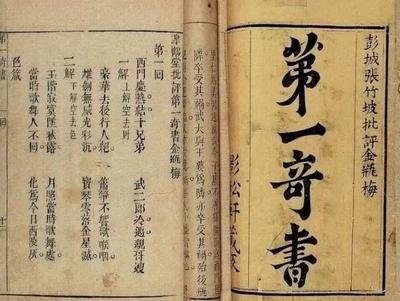 彭城張竹坡批評金瓶梅
第一奇書
影松軒藏
皋鶴堂批評第一奇書金瓶梅
第一回
西門慶熱結十兄弟 武二郎冷遇親哥嫂
一解 上解空去財
豪華去後行人絕 簫箏不響歌喉咽
雄劍無威光彩沉 寶琴零落金星滅
二解 下解空去色
玉階寂寞墜秋露 月照當時歌舞處
當時歌舞人不回 化爲今日西陵灰
色箴